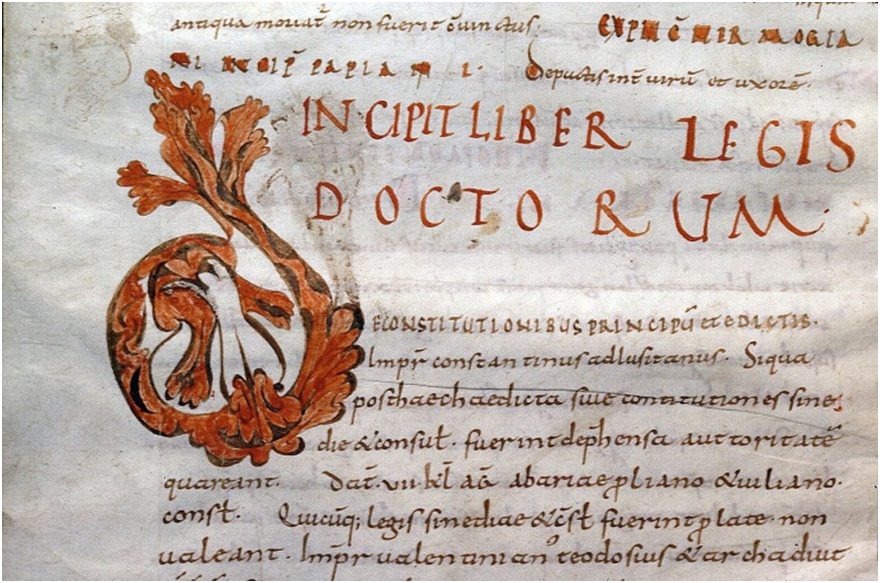 antiqua mouat̄ non fuerit c̄uinctus;
EXPLIC̄ HERMOGIA
NI INCIP̄ PAPIANI I. Depactis int̄ uirū et uxorē.
INCIPIT LIBER LEGIS
DOCTORUM.
ECONSTITUTIONIBUS PRINCIPŪ et EDICTIS.
Imp̄r constantinus adlusitanus. Siqua
posthaec haedicta siue contitutiones sine
die & consul̄. fuerint dep̄hensa auctoritatē
quareant. Dat̄. VII kl̄ aḡ abariae ꝓliano & iuliano.
consl̄. Quicūq; legis sinediae & c̄sl̄ fuerint ꝓlate non
ualeant. Imp̄r ualentinian' teodosius & archadiut